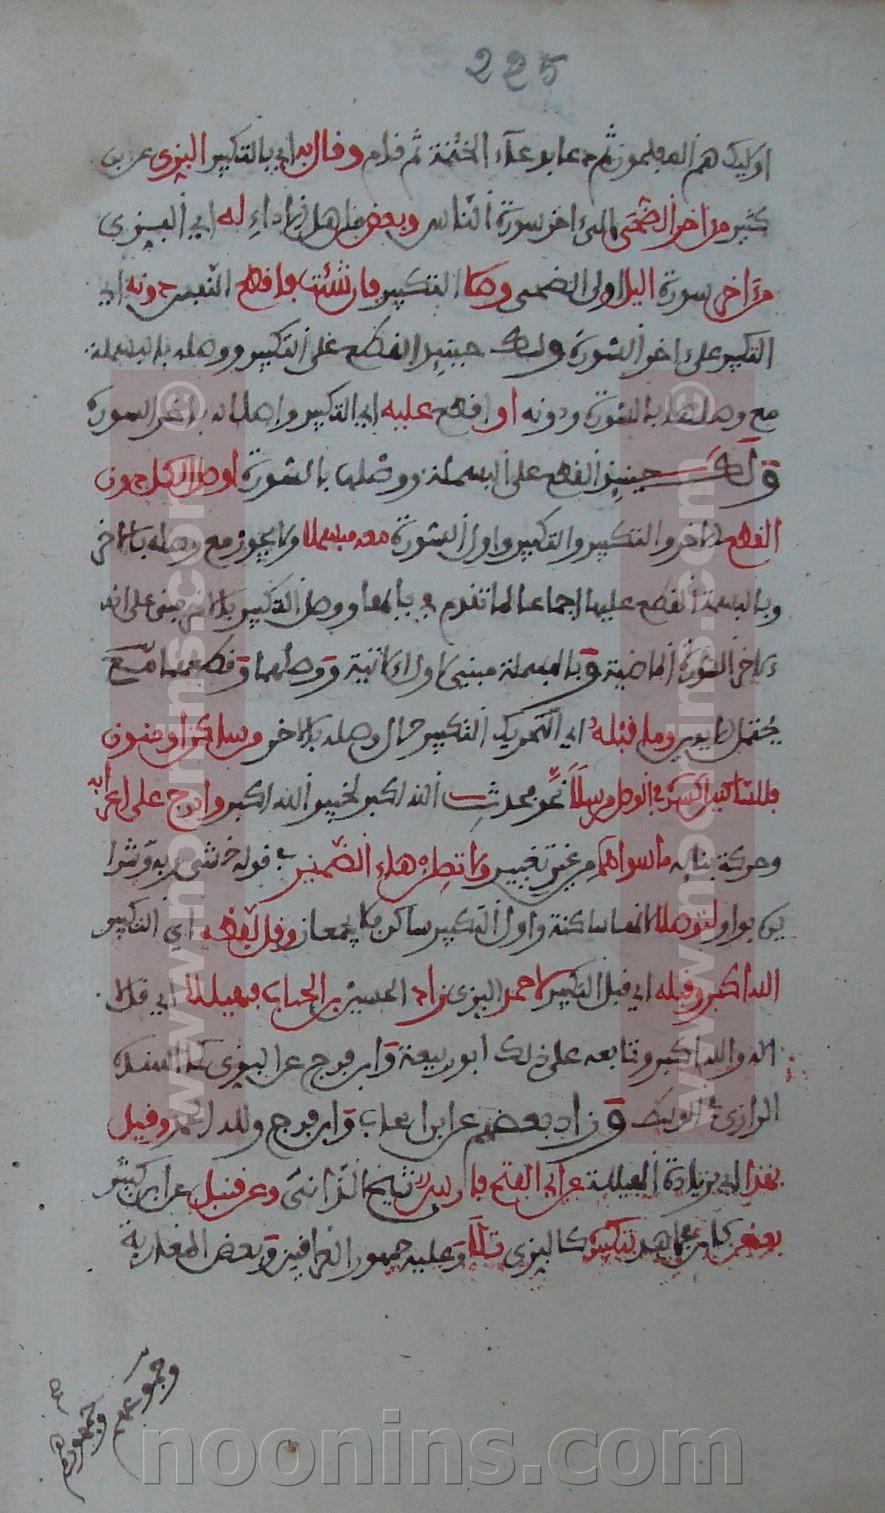 225
اوليك هم المفلحون ثم دعا بدعاء الختمة ثم قام وقال به اي بالتكبير البزي عن ابن
كثير من اخر الضحى الى اخر سورة الناس وبعض من اهل الاداء له اي البزي
من اخر سورة اليل اول الضحى وصل التكبير فان شئت فاقطع النفس دونه اي
التكبير على اخر السورة ولك حينيذ القطع على التكبير ووصله بالبسملة
مع وصلها بالسورة ودونه او اقطع عليه اي التكبير واصلا له باخر السورة
ولك حينيذ القطع على البسملة ووصلها بالسورة او صل الكل دون
القطع الاخر والتكبير والتكبير واول السورة معه مبسملا ولا يجوز مع وصله بالاخر
وبالبسملة القطع عليها اجماعا لما تقدم في بابها ووصل التكبير بالاخر مبني على انه
لاخر السورة الماضية وبالبسملة مبني لاول الاتية ووصلهما وقطعهما مع
يحتمل الامرين وما قبله اي التحريك التكبير حال وصله بالاخر من ساكن او منون
فللساكنين اكسره في الوصل مرسلا نحو فحدث الله اكبر لخبير الله اكبر وادرج على اعرابه
وحركة بنايه ما سواهما من غير تغيير ولا تصل هاء الضمير في قوله خشي ربه وشرا
يره بواو لتوصلا لانها ساكنة واول التكبير ساكن فلا يجمعان وقل لفظه اي التكبير
الله اكبر وقبله اي قبل التكبير لاحمد البزي زاد الحسين بن الحباب فهيللا اي قال
الله والله اكبر وتابعه على ذلك ابو ربيعة وابن فرج عن البزي كما اسنده
الرازي وزاد بعضهم عن ابن الحباب وابن فرج ولله الحمد وقيل
بهذا اي بزيادة الهيللة عن ابي الفتح فارس شيخ الداني وعن قنبل عن ابن كثير
بعض كابن مجاهد بتكبير كالبزي تلا وعليه جمهور العراقيين وبعض المغاربة
وجمهورهم
www.noonins.com ©
www.noonins.com ©
noonins.com